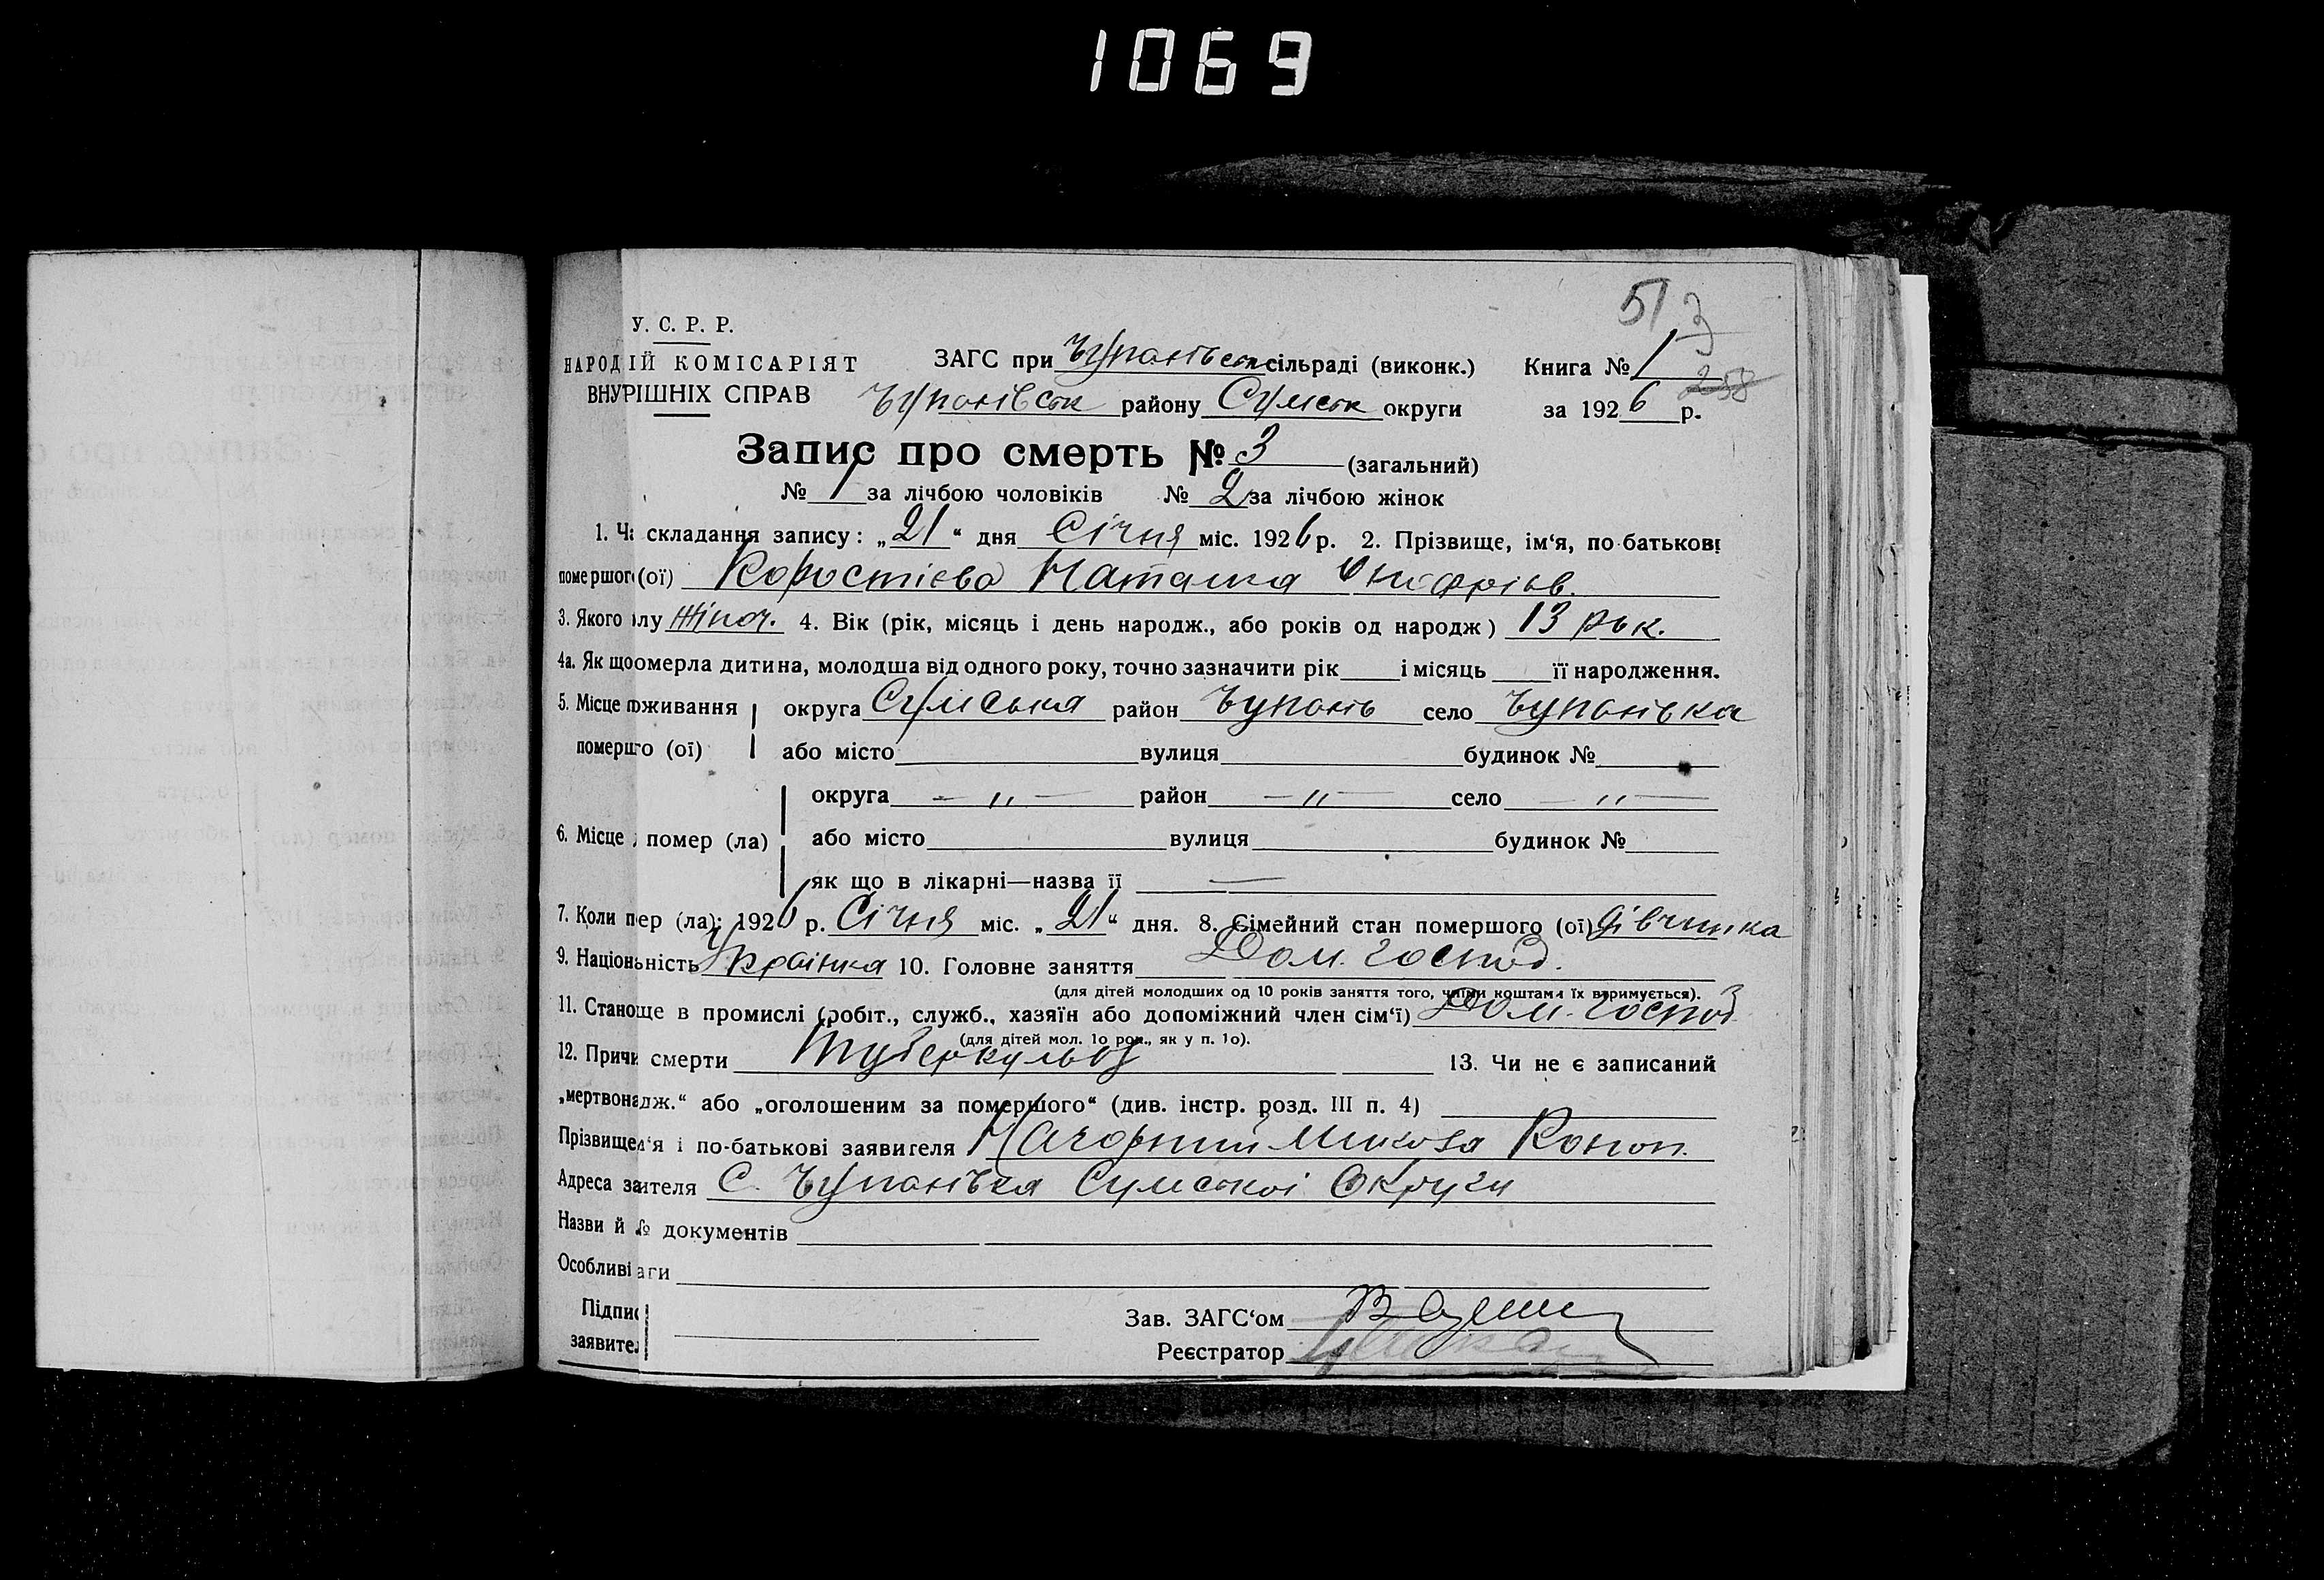 1069
51 3
У. С. Р. Р.
НАРОДІЙ КОМІСАРІЯТ
ВНУРІШНІХ СПРАВ
ЗАГС при Чупахівськ сільраді (виконк.) Книга № 1
258
Чупахівськ району Сумськ округи за 1926 р.
Запис про смерть № 3 (загальний)
№ 1 за лічбою чоловіків № 2 за лічбою жінок
1. Ч складання запису: „21“ дня Січня міс. 1926 р. 2. Прізвище, ім‘я, по-батькові
помершог(ої) Коростієва Наталка Онофріів.
3. Якого лу Жіноч. 4. Вік (рік, місяць і день народж., або років од народж) 13 рок.
4а. Як що омерла дитина, молодша від одного року, точно зазначити рік і місяць її народження.
5. Місце оживання округа Сумська район Чупахів село Чупахівка
помершго (ої) або місто вулиця будинок №
округа — „ — район — „ — село — „ —
6. Місце помер (ла) або місто вулиця будинок №
як що в лікарні—назва її —
7. Коли пер (ла): 1926 р. Січня міс. „21“ дня. 8. Сімейний стан помершого (ої) дівчинка
9. Націонність Українка 10. Головне заняття Дом. господ.
(для дітей молодших од 10 років заняття того, чиїми коштами їх втримується).
11. Станоще в промислі (робіт., служб., хазяїн або допоміжний член сім‘ї) Дом. господ
(для дітей мол. 1о рок., як у п. 1о).
12. Причи смерти Туберкульоз 13. Чи не є записаний
„мертвонадж.“ або „оголошеним за помершого“ (див. інстр. розд. III п. 4)
Прізвищем‘я і по-батькові заявителя Микола Конон.
Адреса заителя С. Чупахівка Сумської Округи
Назви й № документів
Особливі аги
Підпис
заявител
Зав. ЗАГС‘ом
Реєстратор